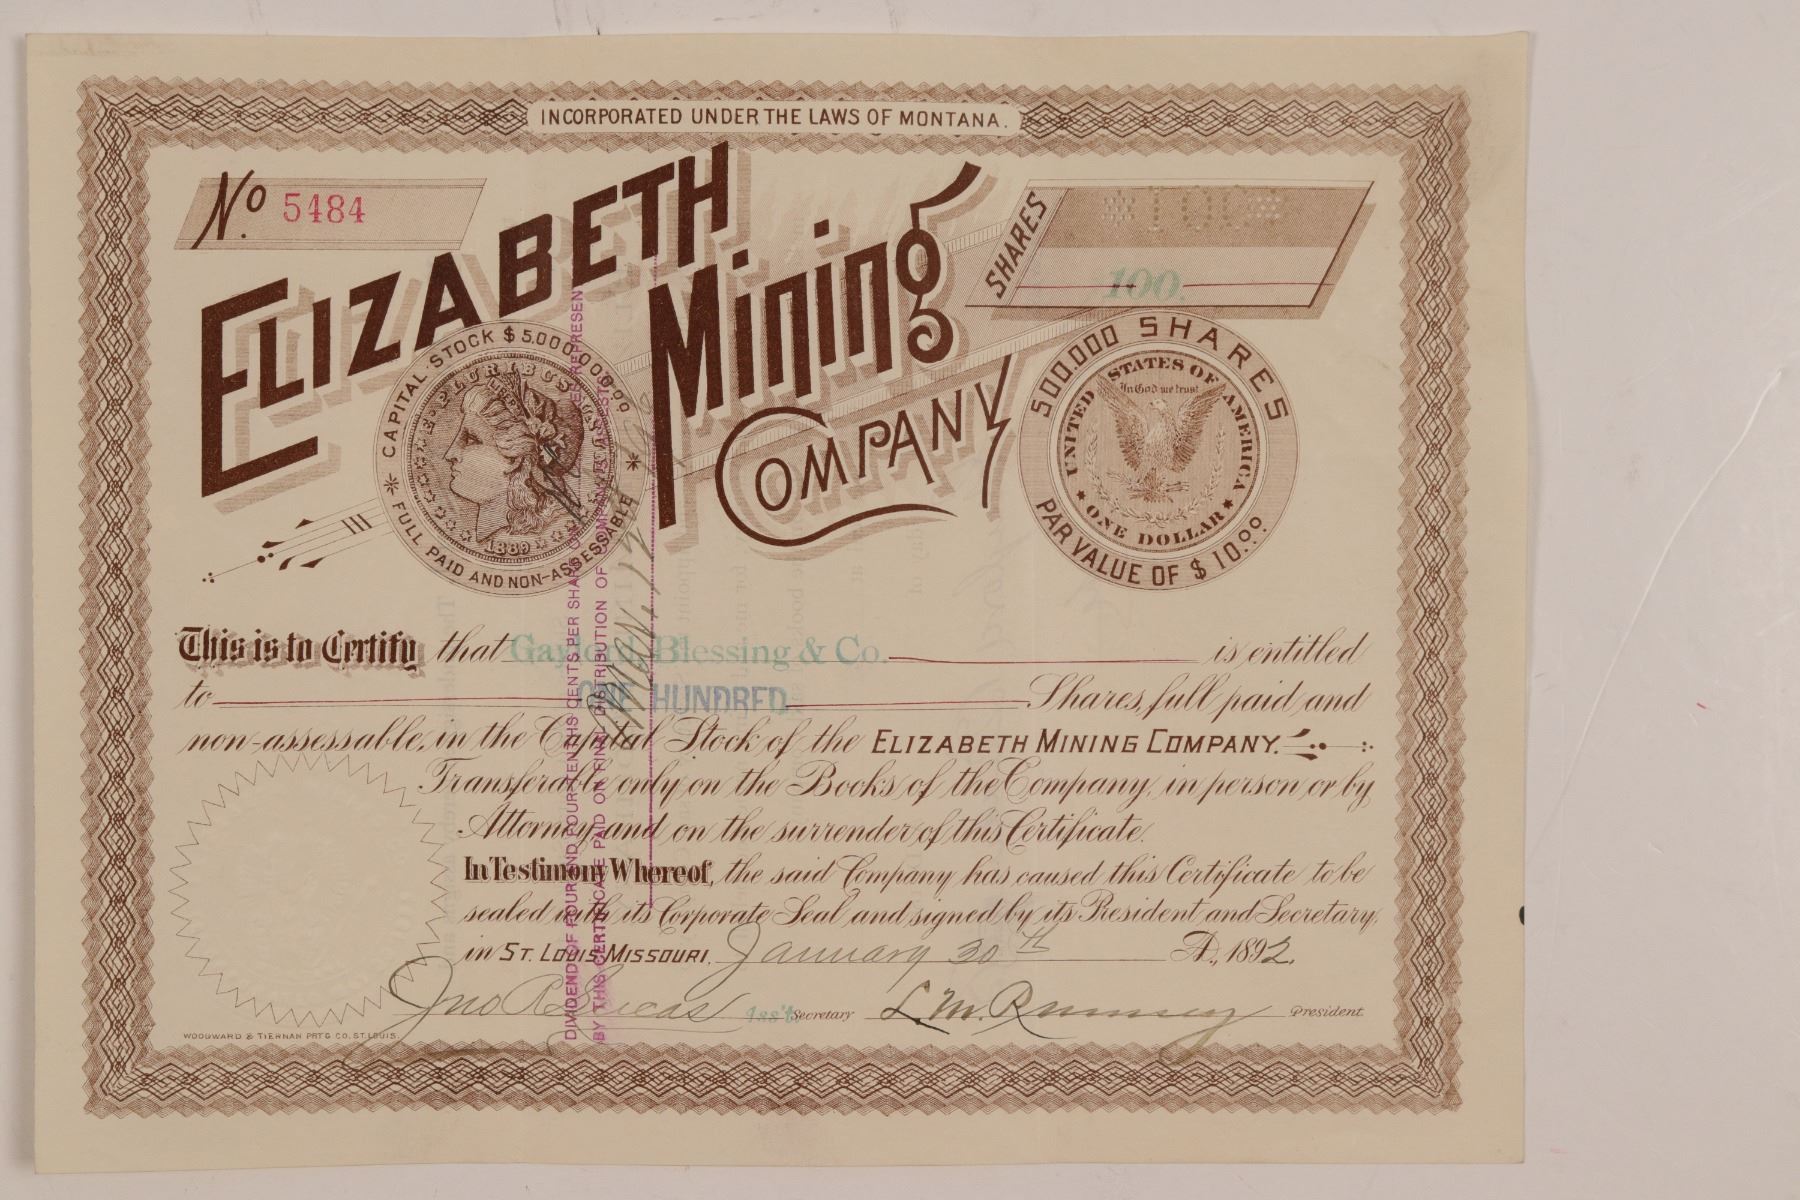 INCORPORATED UNDER THE LAWS OF MONTANA.
No. 5484
ELIZABETH
Mining
COMPANY
SHARES
*100*
100.
CAPITAL STOCK $5.000,000.00
* FULL PAID AND NON-ASSESSABLE *
E PLURIBUS UNUM
LIBERTY
1889
500.000 SHARES
PAR VALUE OF $10.00
UNITED STATES OF AMERICA
In God we trust
★ ONE DOLLAR ★
This is to Certify that Gaylord, Blessing & Co. is entitled
to ONE HUNDRED Shares, full paid and
non-assessable, in the Capital Stock of the ELIZABETH MINING COMPANY.
Transferable only on the Books of the Company, in person or by
Attorney and on the surrender of this Certificate.
In Testimony Whereof, the said Company has caused this Certificate to be
sealed with its Corporate Seal and signed by its President and Secretary,
in ST. LOUIS MISSOURI, January 30th A.D., 1892.
Jno R Lucas Ass't Secretary L. M. Rumsey President
WOODWARD & TIERNAN PRT'G CO. ST. LOUIS.
DIVIDEND OF FOUR AND FOUR-TENTHS CENTS PER SHARE ON STOCK REPRESENTED
BY THIS CERTIFICATE PAID ON FINAL DISTRIBUTION OF COMPANY'S ASSETS